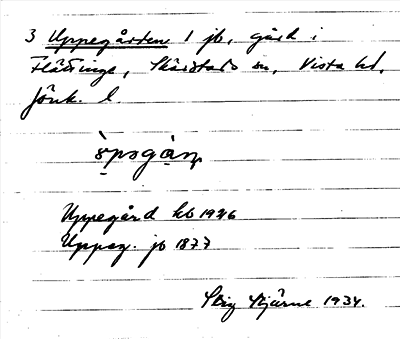 3 Uppegården 1 jb, gård i
Flättinge, Skärstads sn, Vista hd,
Jönk. l.
Uppegård kb 1926
Uppeg. jb 1877
Stig Stjärne 1934.